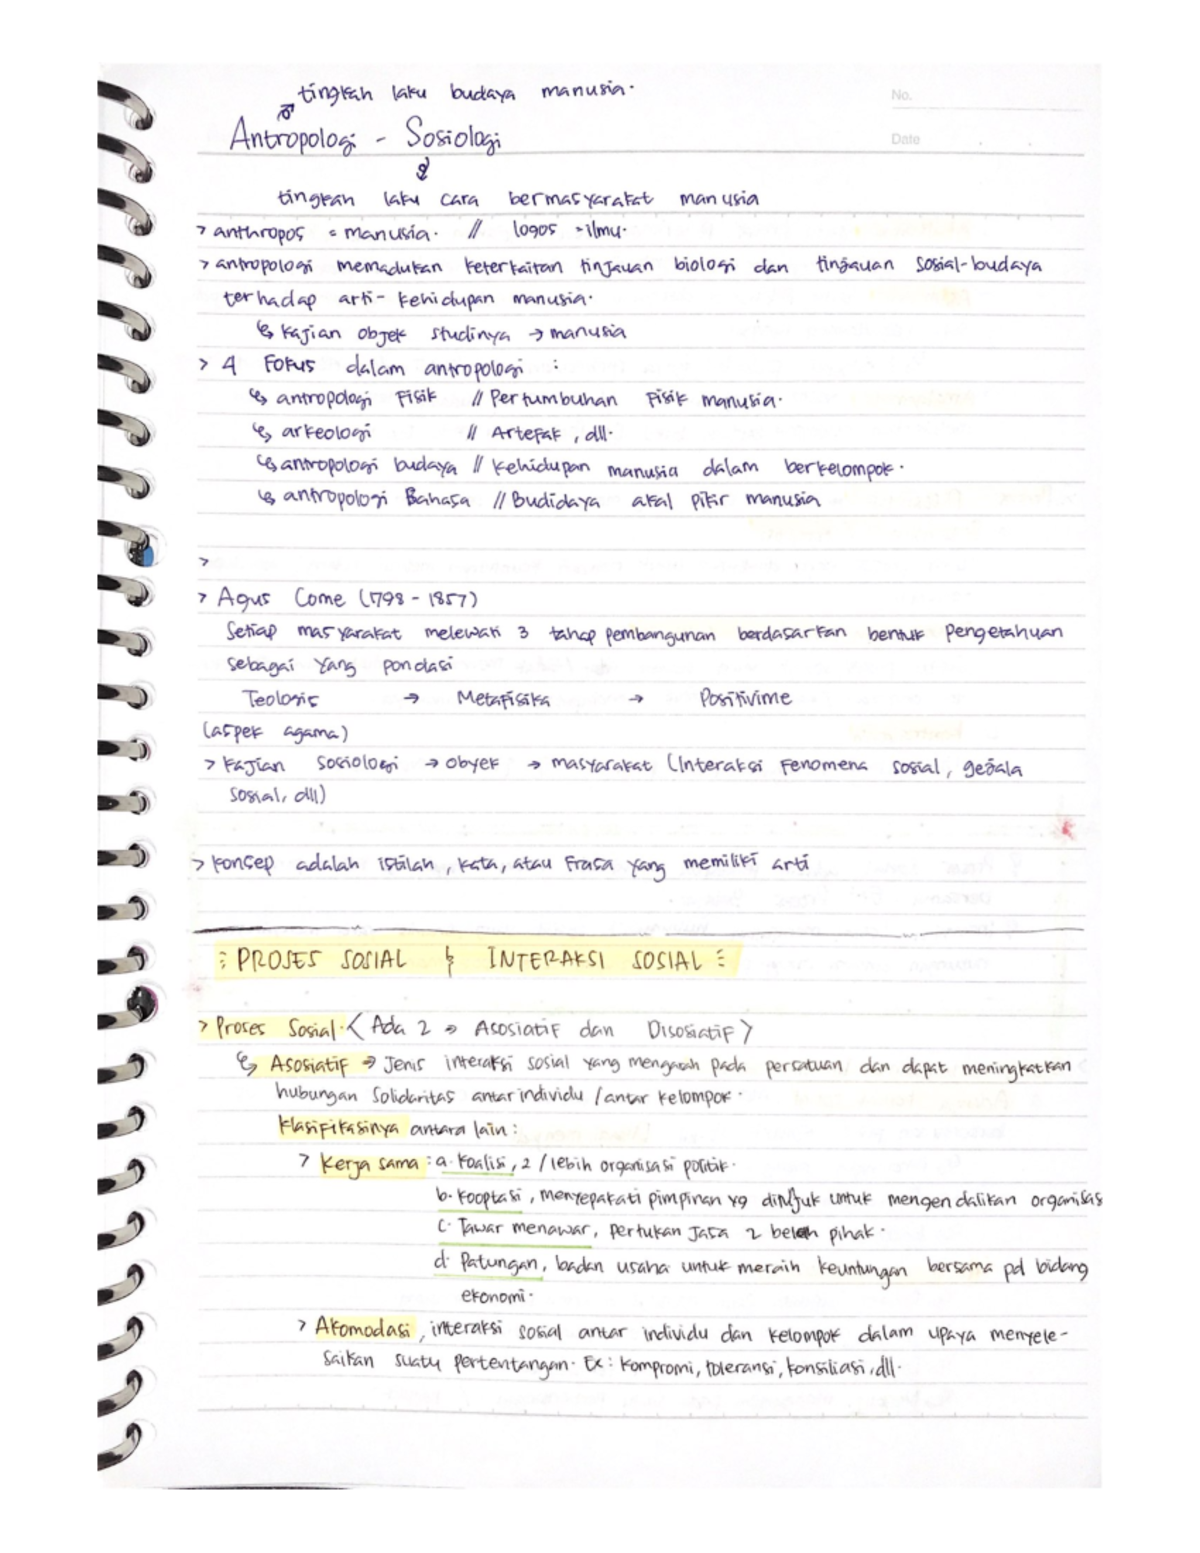 tingkah laku budaya manusia.
No.
Antropologi - Sosiologi
Date
tingkah laku cara bermasyarakat manusia
> anthropos = manusia. // logos = ilmu.
> antropologi memadukan keterkaitan tinjauan biologi dan tinjauan sosial-budaya
terhadap arti- kehidupan manusia.
↳ kajian objek studinya → manusia
> 4 Fokus dalam antropologi :
↳ antropologi Fisik // Pertumbuhan Fisik manusia.
↳ arkeologi // Artefak, dll.
↳ antropologi budaya // kehidupan manusia dalam berkelompok.
↳ antropologi Bahasa // Budidaya akal pikir manusia
>
> Agus Come (1798 - 1857)
Setiap masyarakat melewati 3 tahap pembangunan berdasarkan bentuk pengetahuan
sebagai yang pondasi
Teologis → Metafisika → Positivime
(aspek agama)
> Kajian Sosiologi → obyek → masyarakat (Interaksi Fenomena sosial, gejala
sosial, dll)
> konsep adalah istilah, kata, atau Frasa yang memiliki arti
PROSES SOSIAL & INTERAKSI SOSIAL
> Proses Sosial. < Ada 2 → Asosiatif dan Disosiatif >
↳ Asosiatif → Jenis interaksi sosial yang mengarah pada persatuan dan dapat meningkatkan
hubungan solidaritas antar individu / antar kelompok.
Klasifikasinya antara lain :
> Kerja sama : a. Koalisi, 2 / lebih organisasi politik.
b. Kooptasi, menyepakati pimpinan yg ditunjuk untuk mengendalikan organisas
c. Tawar menawar, pertukan jasa 2 belah pihak.
d. Patungan, badan usaha untuk meraih keuntungan bersama pd bidang
ekonomi.
> Akomodasi, interaksi sosial antar individu dan kelompok dalam upaya menyele-
saikan suatu pertentangan. Ex : kompromi, toleransi, konsiliasi, dll.